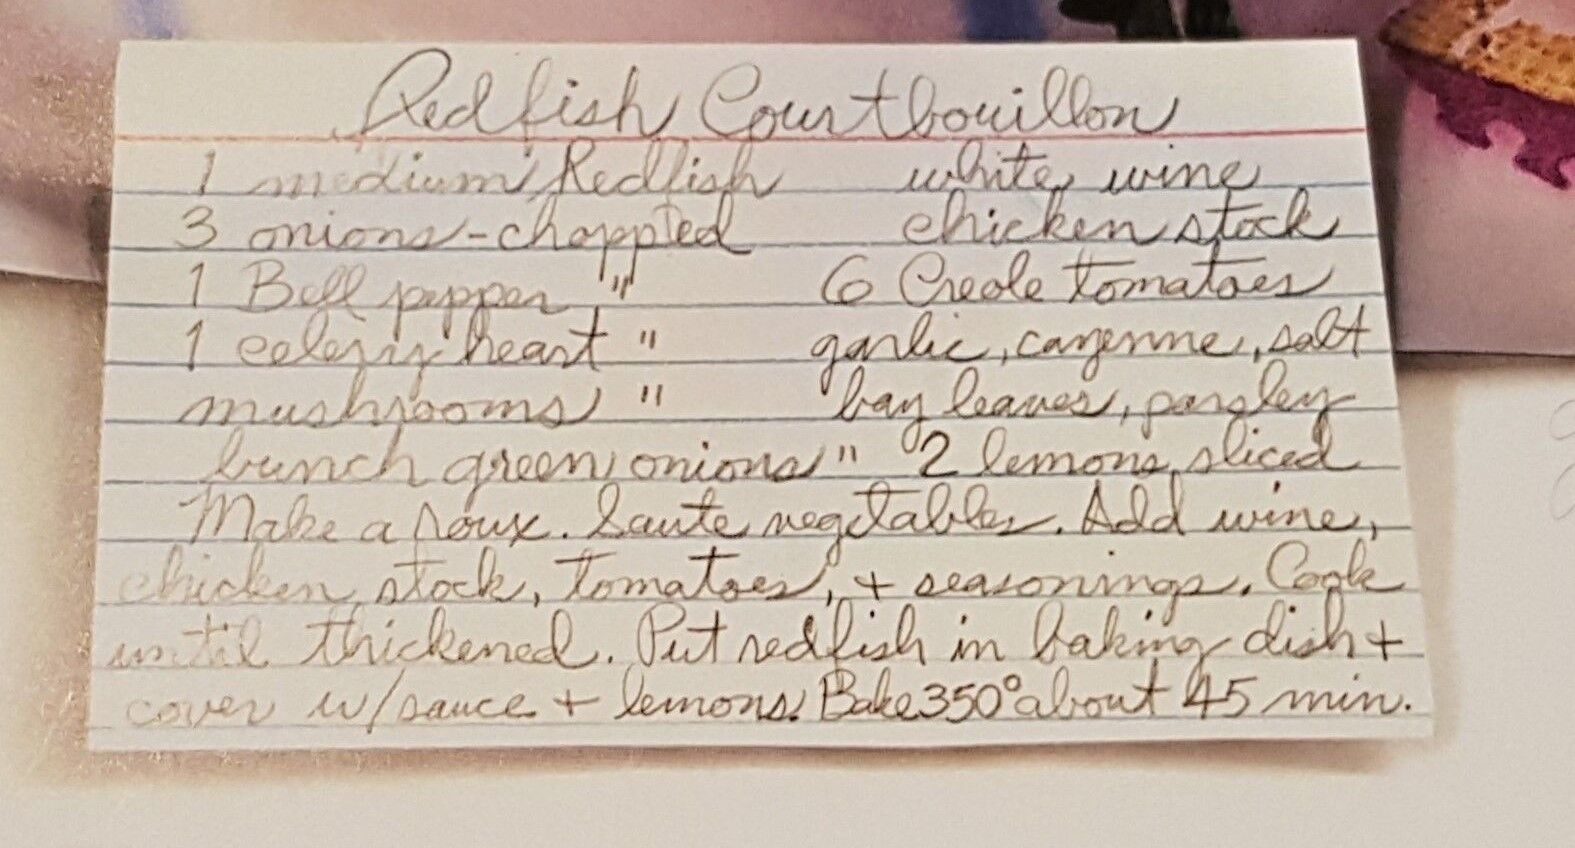 Redfish Courtbouillon
1 medium Redfish white wine
3 onions - chopped chicken stock
1 Bell pepper " 6 Creole tomatoes
1 celery heart " garlic, cayenne, salt
mushrooms " bay leaves, parsley
bunch green onions " 2 lemons, sliced
Make a roux. Saute vegetables. Add wine,
chicken stock, tomatoes, + seasonings. Cook
until thickened. Put redfish in baking dish +
cover w/sauce + lemons. Bake 350° about 45 min.